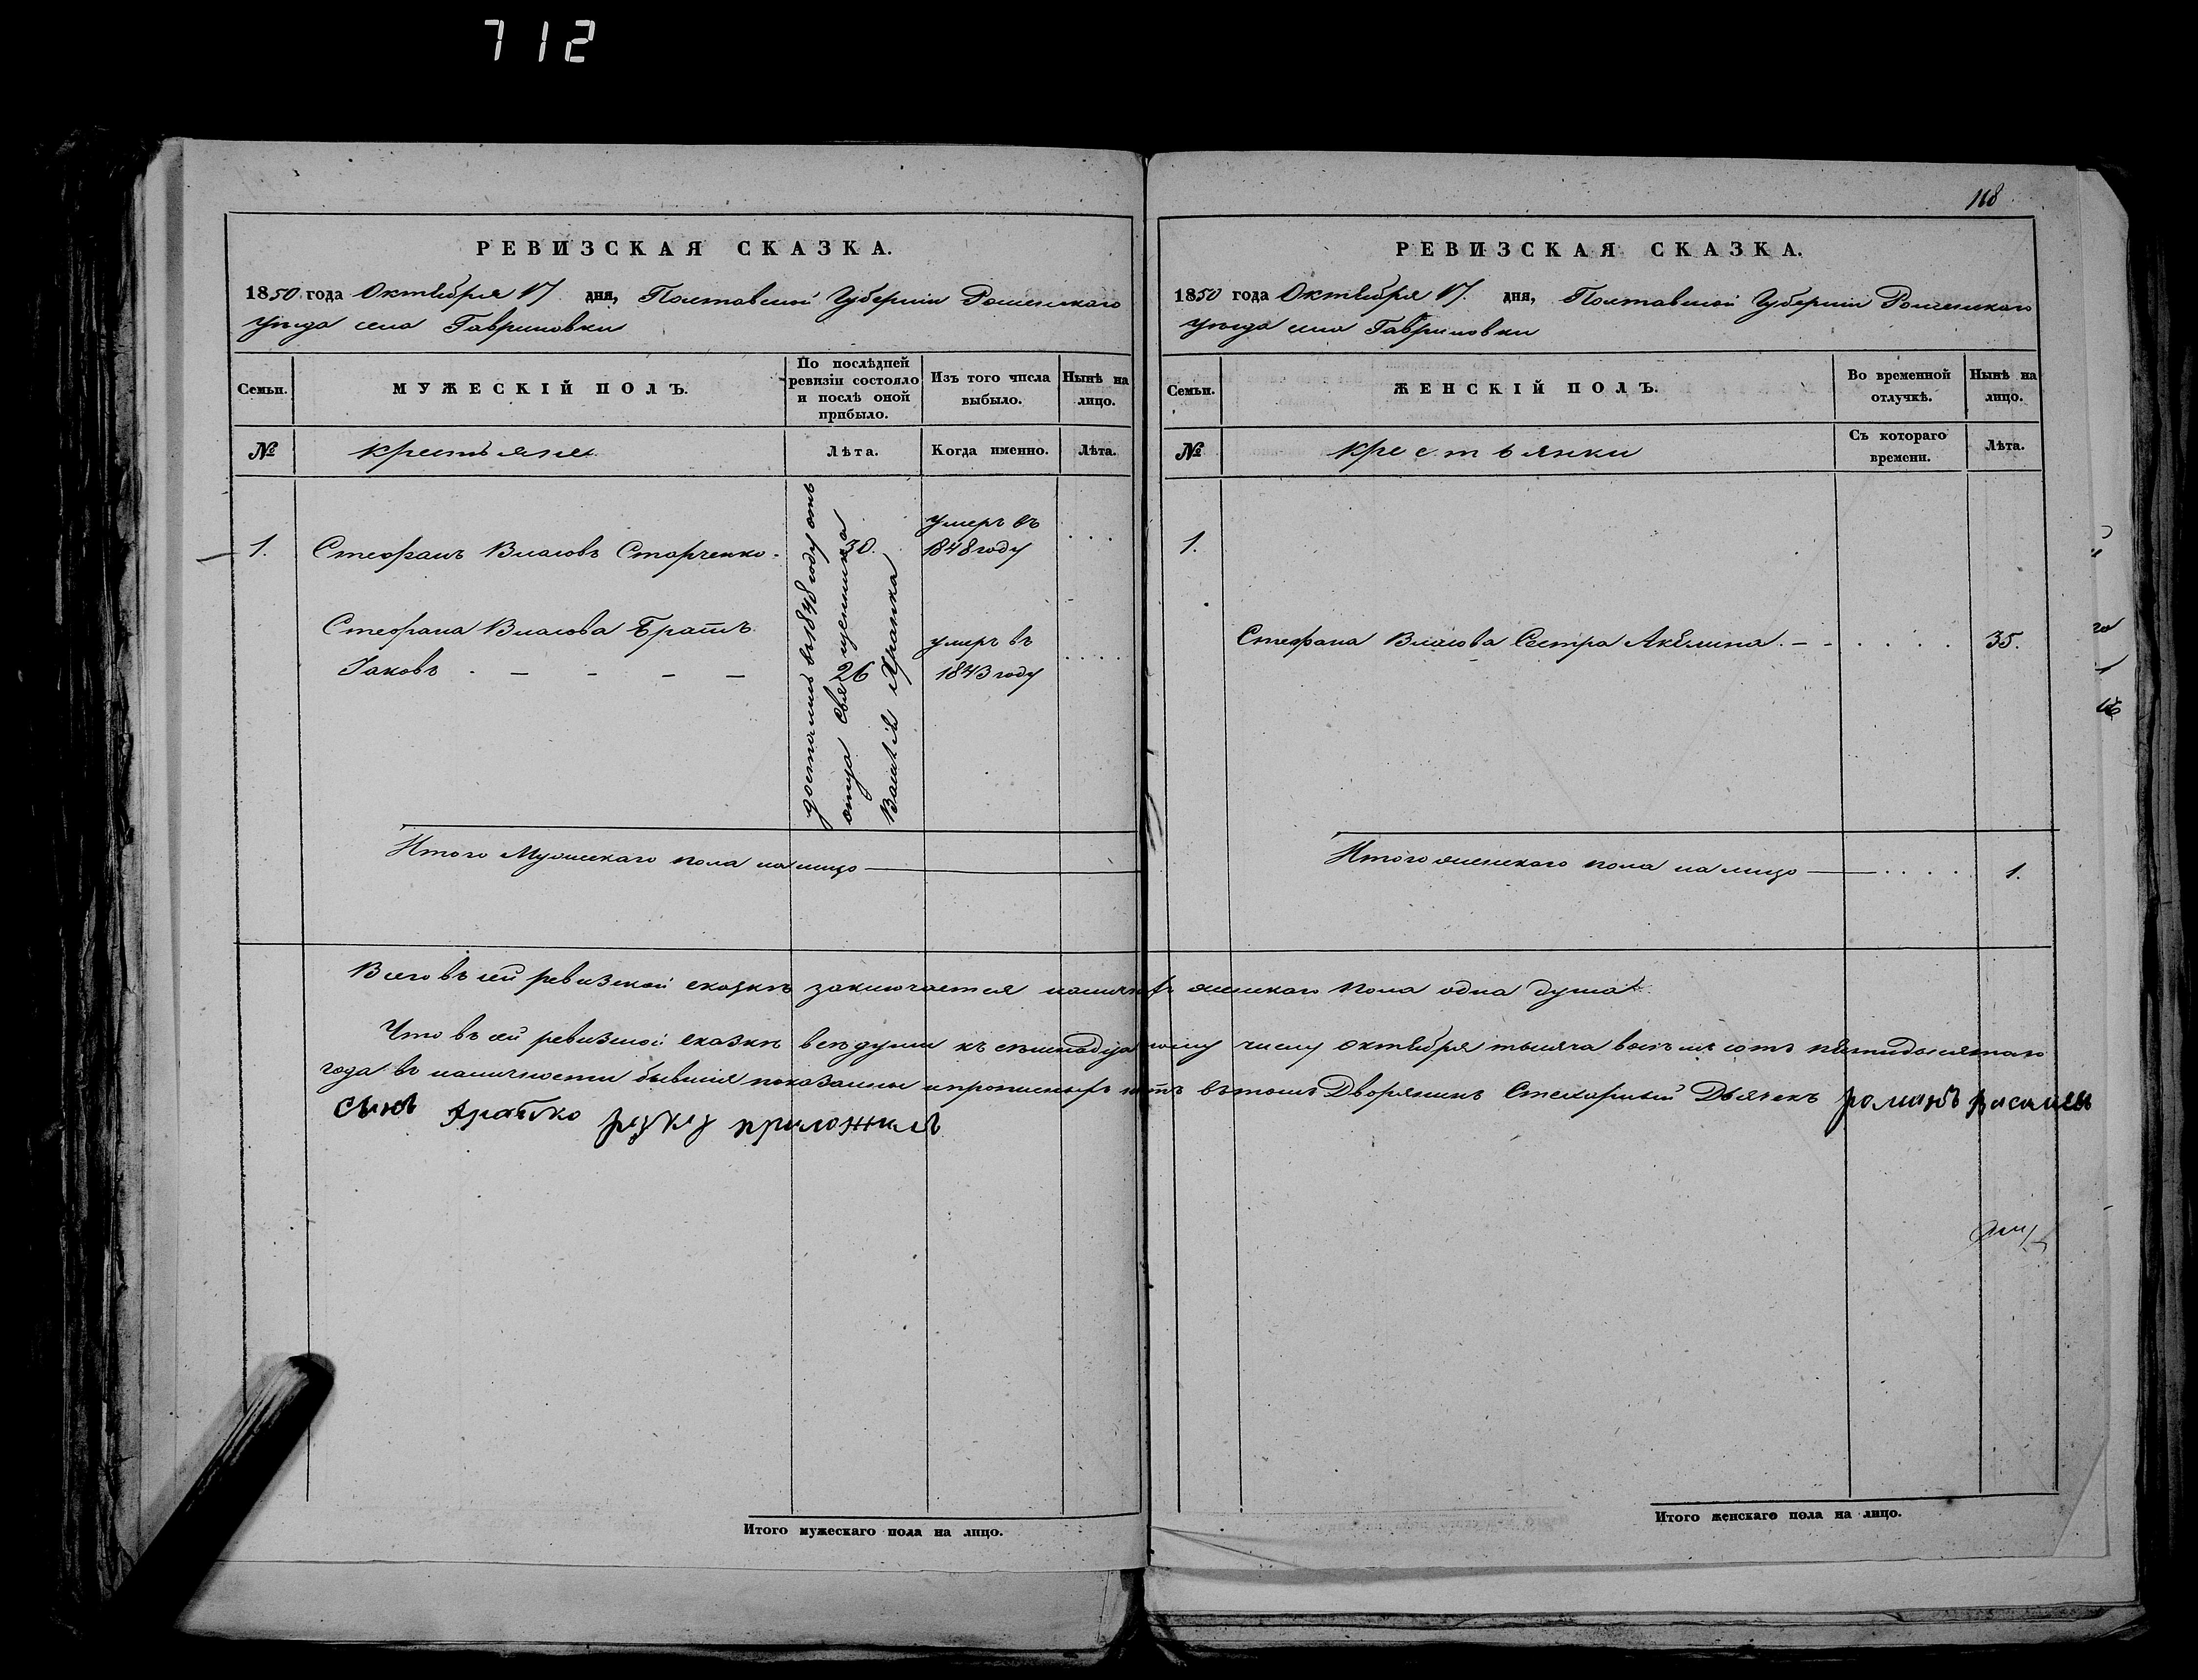 712
168
РЕВИЗСКАЯ СКАЗКА.
1850 года Октября 17 дня, Полтавской Губерніи Роменскаго
уѣзда села Гавриловки
Семьи.
МУЖЕСКІЙ ПОЛЪ.
По послѣдней ревизіи состояло и послѣ оной прибыло.
Изъ того числа выбыло.
Нынѣ на лицо.
№
крестьяне
Лѣта.
Когда именно.
Лѣта.
1. Стефанъ Власовъ Старченко. 30. умеръ въ 1848 году
Стефана Власова Братъ
Іаковъ 26 умеръ въ 1843 году
достались въ 1848 году отъ
отца священника
Василія Храпка
Итого Мужескаго пола на лицо
РЕВИЗСКАЯ СКАЗКА.
1850 года Октября 17. дня, Полтавской Губерніи Роменскаго
уѣзда села Гавриловки
Семьи.
ЖЕНСКІЙ ПОЛЪ.
Во временной отлучкѣ.
Нынѣ на лицо.
№
крестьянки
Съ котораго времени.
Лѣта.
1.
Стефана Власова Сестра Акелина. 35.
Итого женскаго пола на лицо 1.
Всего въ сей ревизской сказкѣ заключается женскаго пола одна душа
Что въ сей ревизской сказкѣ всѣ души къ семнадцатому числу октября тысяча восемь сотъ пятидесятаго
года въ наличности бывшія показаны и прописныхъ нѣтъ въ томъ Дворянинъ Дьячекъ романъ василіевъ
сынъ Храпко руку приложилъ
Итого мужескаго пола на лицо.
Итого женскаго пола на лицо.